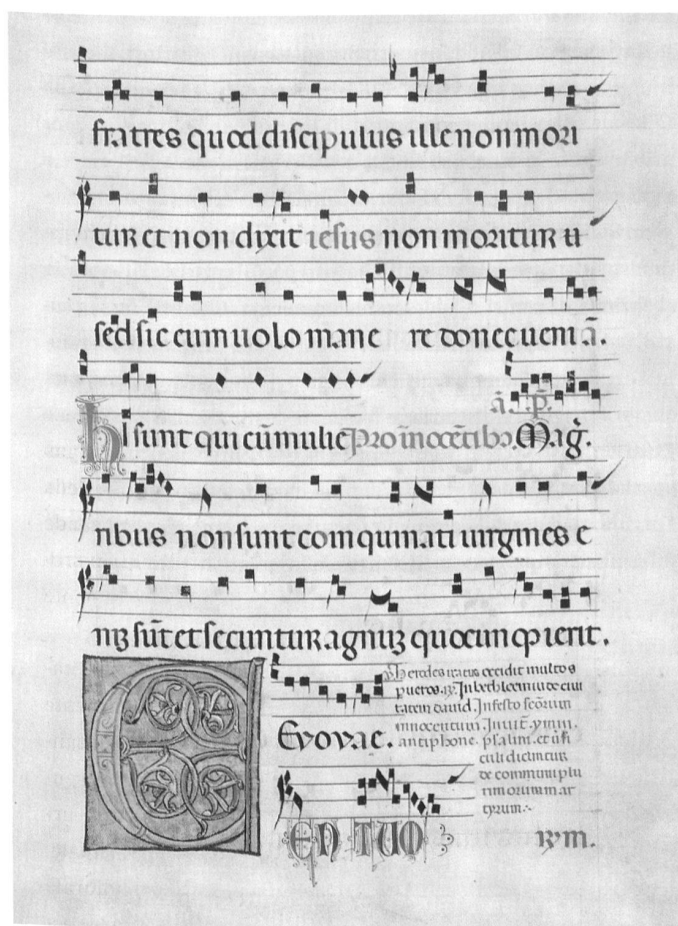 fratres quod discipulus ille non mori
tur et non dixit iesus non moritur
sed sic eum uolo mane re donec ueni ā.
ā. P̄.
hI sunt qui cū mulie Pro īnocētibꝫ. Mag̃.
ribus non sunt com quinati uirgines e
nīꝫ sūt et secuntur agnuꝫ quocunqꝫ ierit.
Herodes iratus occidit multos
pueros. In bethleem iude ciui
tatem dauid. In festo scōrum
innocentum. Inuit. ymni.
Evovae. antiphone. psalmi. et ūsi
culi dicuntur
de communi plu
rimorum mar
tyrum.
EN TUO rym.